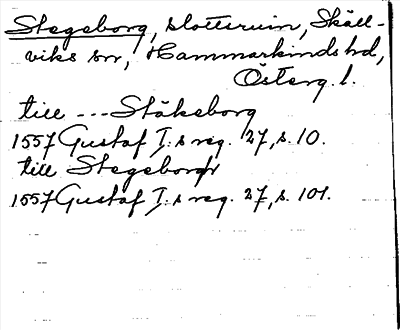 Stegeborg, slottsruin, Skäll-
viks sn, Hammarkinds hd,
Österg. l.
till --- Stäkeborg
1557 Gustaf I:s reg. 27, s. 10.
till Stegeborg
1557 Gustaf I:s reg. 27, s. 101.